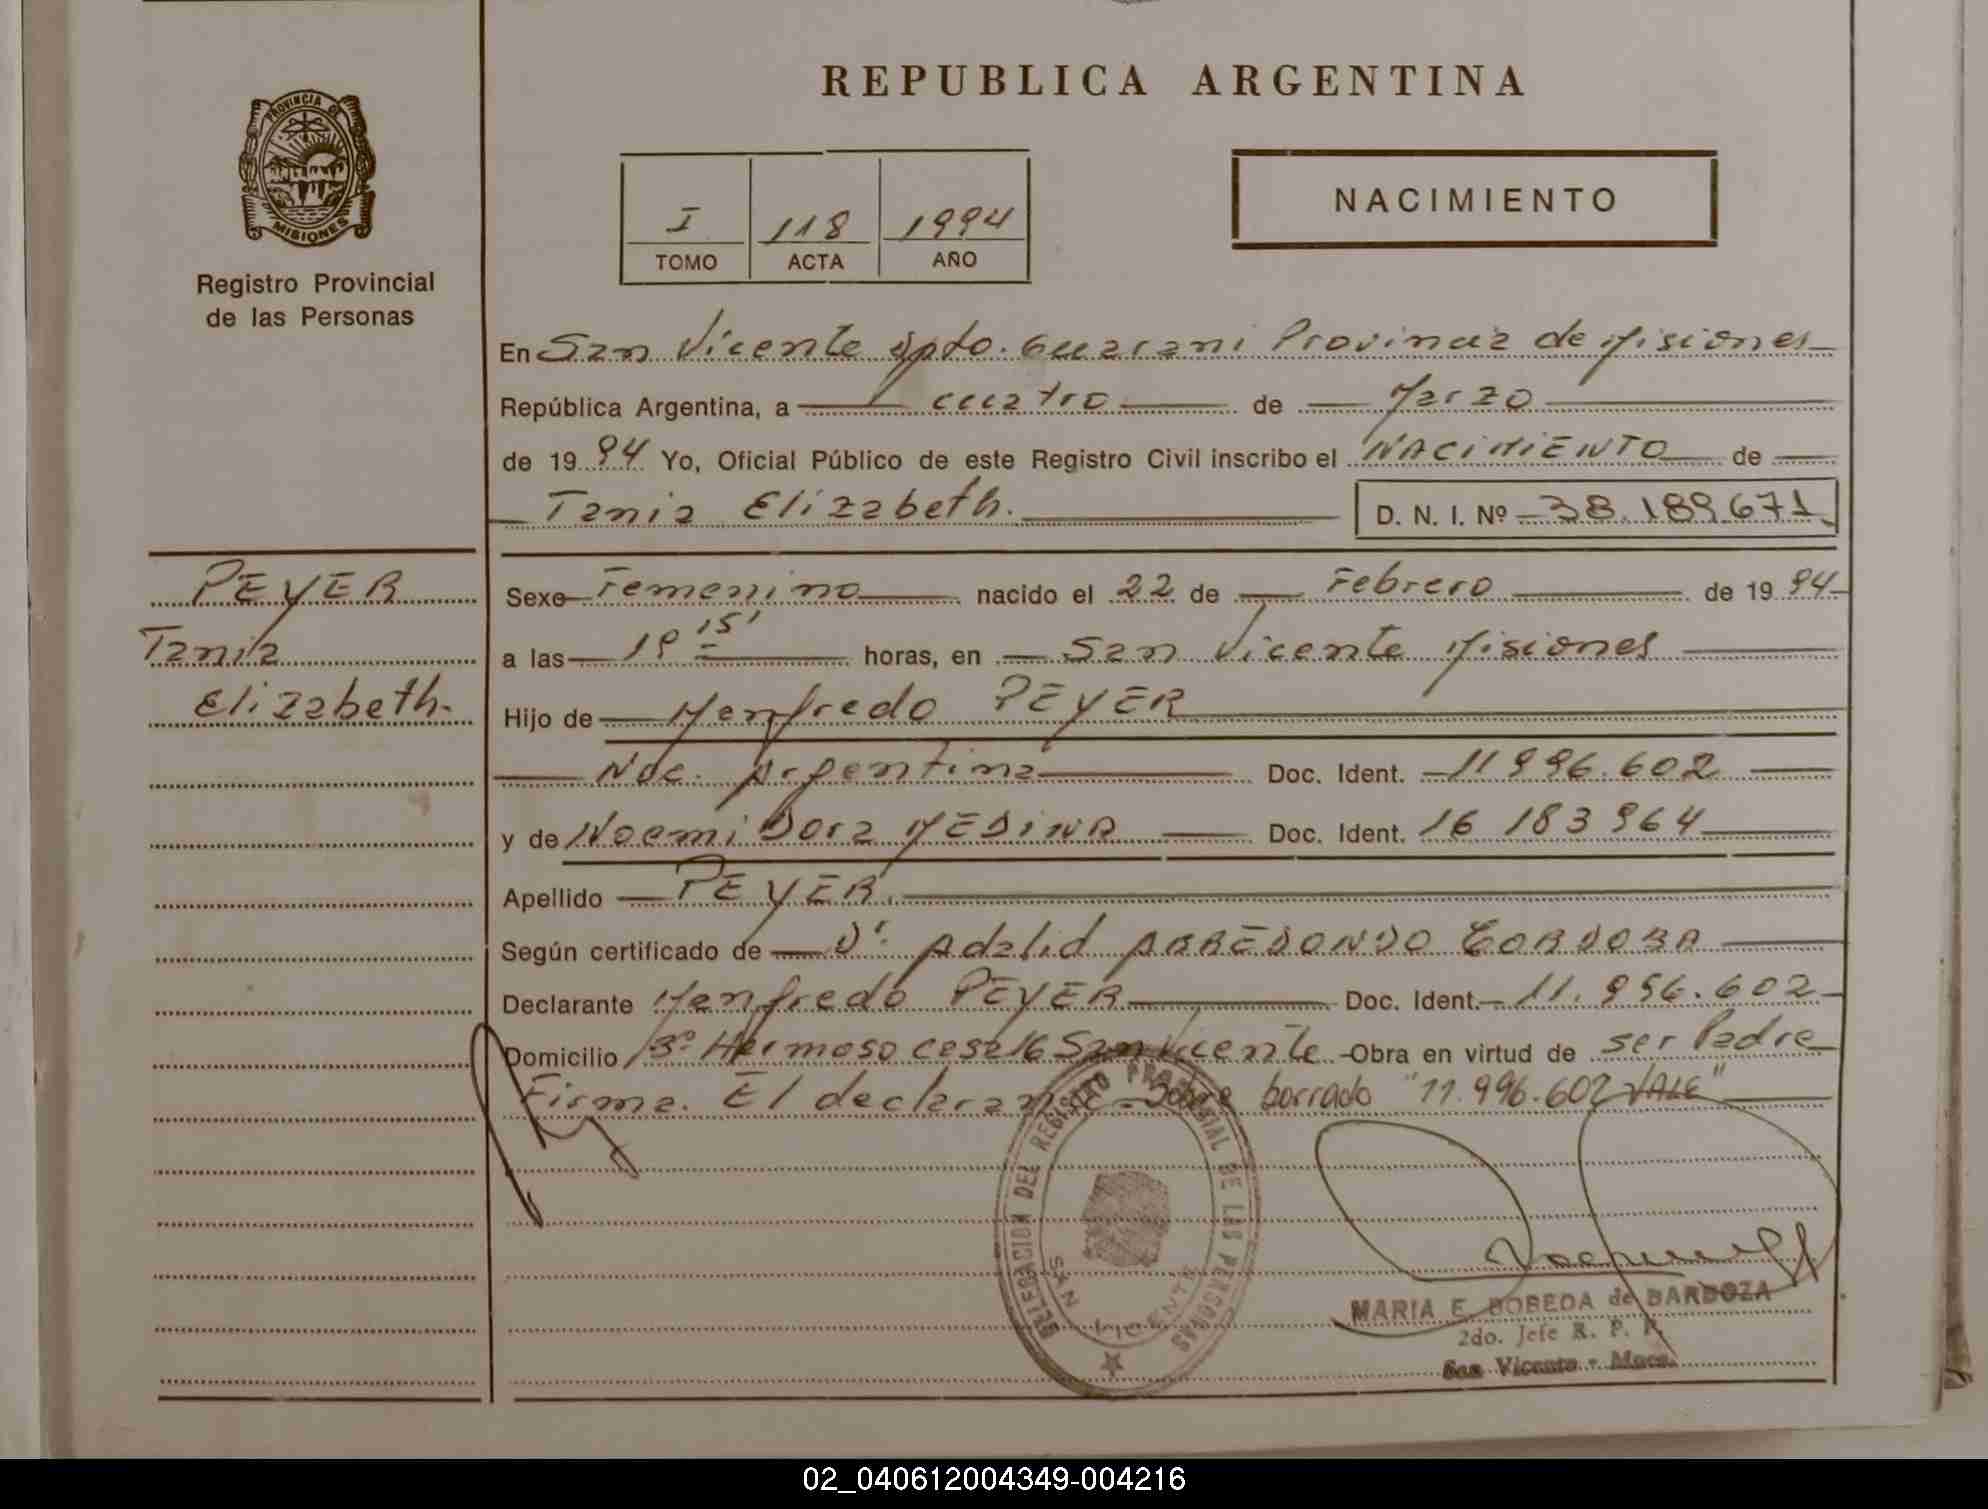 REPUBLICA ARGENTINA
PROVINCIA DE
MISIONES
Registro Provincial
de las Personas
I 118 1994
TOMO ACTA AÑO
NACIMIENTO
En San Vicente Dpto. Guarani Provincia de Misiones
República Argentina, a cuatro de Marzo
de 1994 Yo, Oficial Público de este Registro Civil inscribo el NACIMIENTO de
Tania Elizabeth. D. N. I. Nº 38.189.671
PEYER
Tania
Elizabeth.
Sexo Femenino nacido el 22 de Febrero de 1994
a las 19 15' horas, en San Vicente Misiones
Hijo de Menfredo PEYER
Nac. Argentina Doc. Ident. 11 996.602
y de Noemi Dora MEDINA Doc. Ident. 16 183 964
Apellido PEYER.
Según certificado de Dr. Adalid ARREDONDO CORDOBA
Declarante Menfredo PEYER Doc. Ident. 11.996.602
Domicilio Bº Hermoso casa 16 San Vicente - Obra en virtud de ser Padre
Firma. El declarante - Sobre borrado "11.996.602 VALE"
DELEGACION DEL REGISTRO PROVINCIAL DE LAS PERSONAS
SAN VICENTE
MARIA E. BOBEDA de BARBOZA
2do. Jefe R. P. P.
San Vicente - Mnes.
02_040612004349-004216